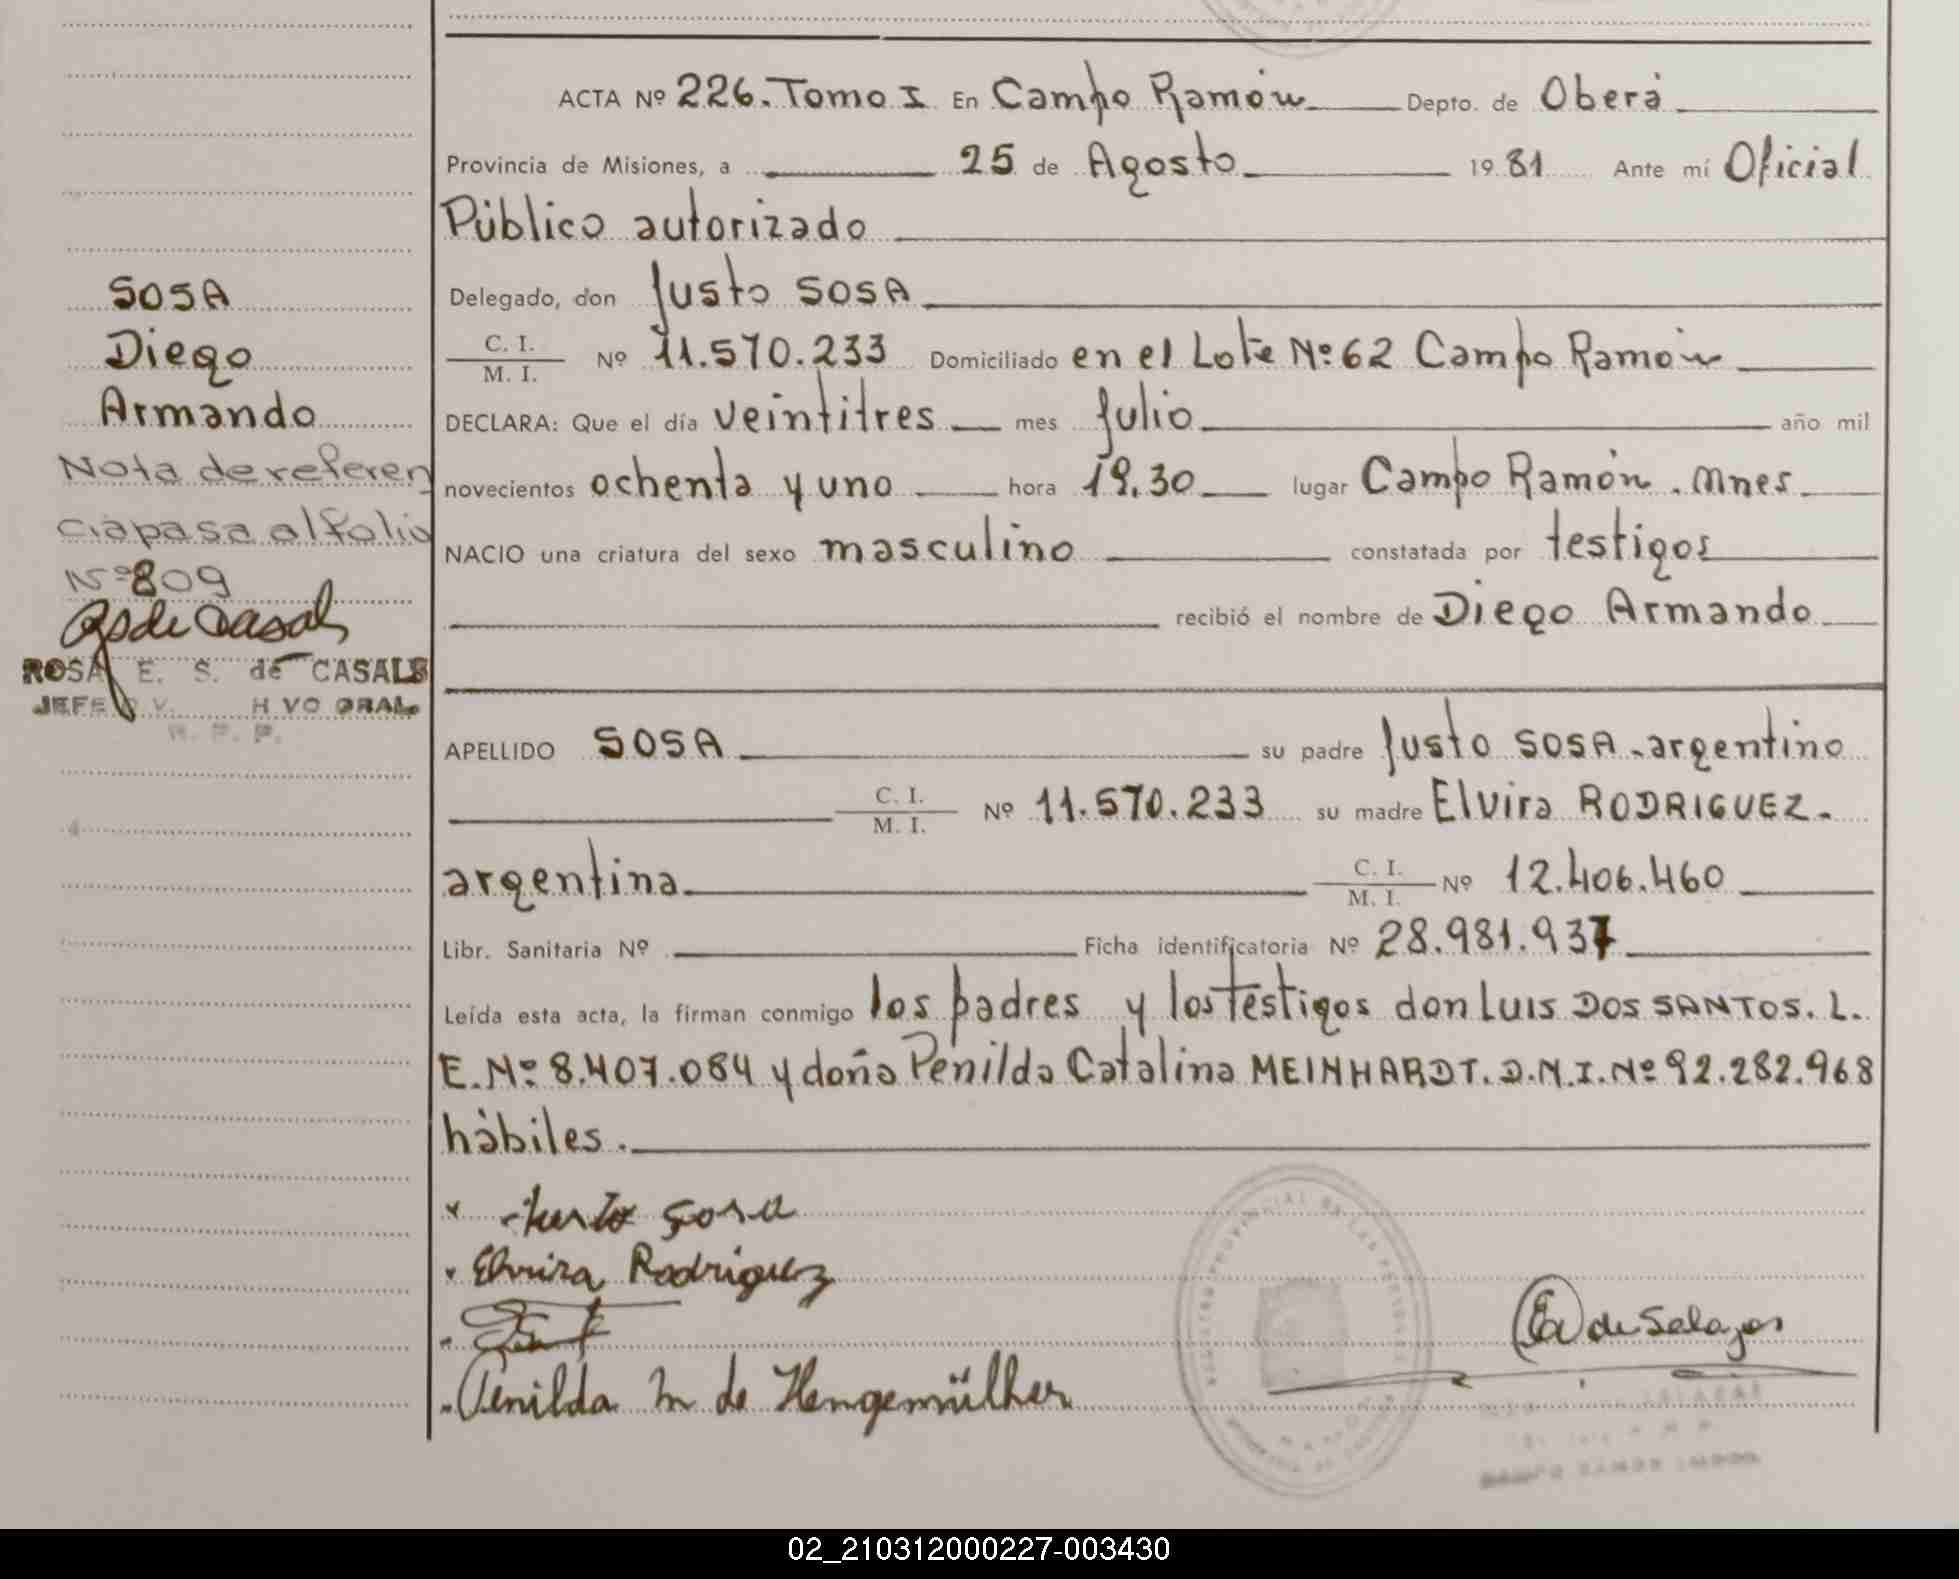 ACTA Nº 226. Tomo I En Campo Ramón Depto. de Oberá
Provincia de Misiones, a 25 de Agosto 19 81 Ante mí Oficial
Público autorizado
Delegado, don Justo SOSA
C. I.
M. I.
Nº 11.570.233 Domiciliado en el Lote Nº 62 Campo Ramón
DECLARA: Que el día veintitres mes Julio año mil
novecientos ochenta y uno hora 19,30 lugar Campo Ramón. Mnes.
NACIO una criatura del sexo masculino constatada por testigos
recibió el nombre de Diego Armando
APELLIDO SOSA su padre Justo SOSA - argentino
C. I.
M. I.
Nº 11.570.233 su madre Elvira RODRIGUEZ.
argentina C. I.
M. I.
Nº 12.406.460
Libr. Sanitaria Nº Ficha identificatoria Nº 28.981.937
Leída esta acta, la firman conmigo los padres y los testigos don Luis DOS SANTOS. L.
E. Nº 8.407.084 y doña Penilda Catalina MEINHARDT. D.N.I. Nº 92.282.968
hábiles.
Justo Sosa
Elvira Rodriguez
Penilda M de Hengemülher
de Salazar
SOSA
Diego
Armando
Nota de referen
cia pasa al folio
Nº 809
RS de Casals
ROSA E. S. de CASALS
JEFE
R. P. P.
02_210312000227-003430